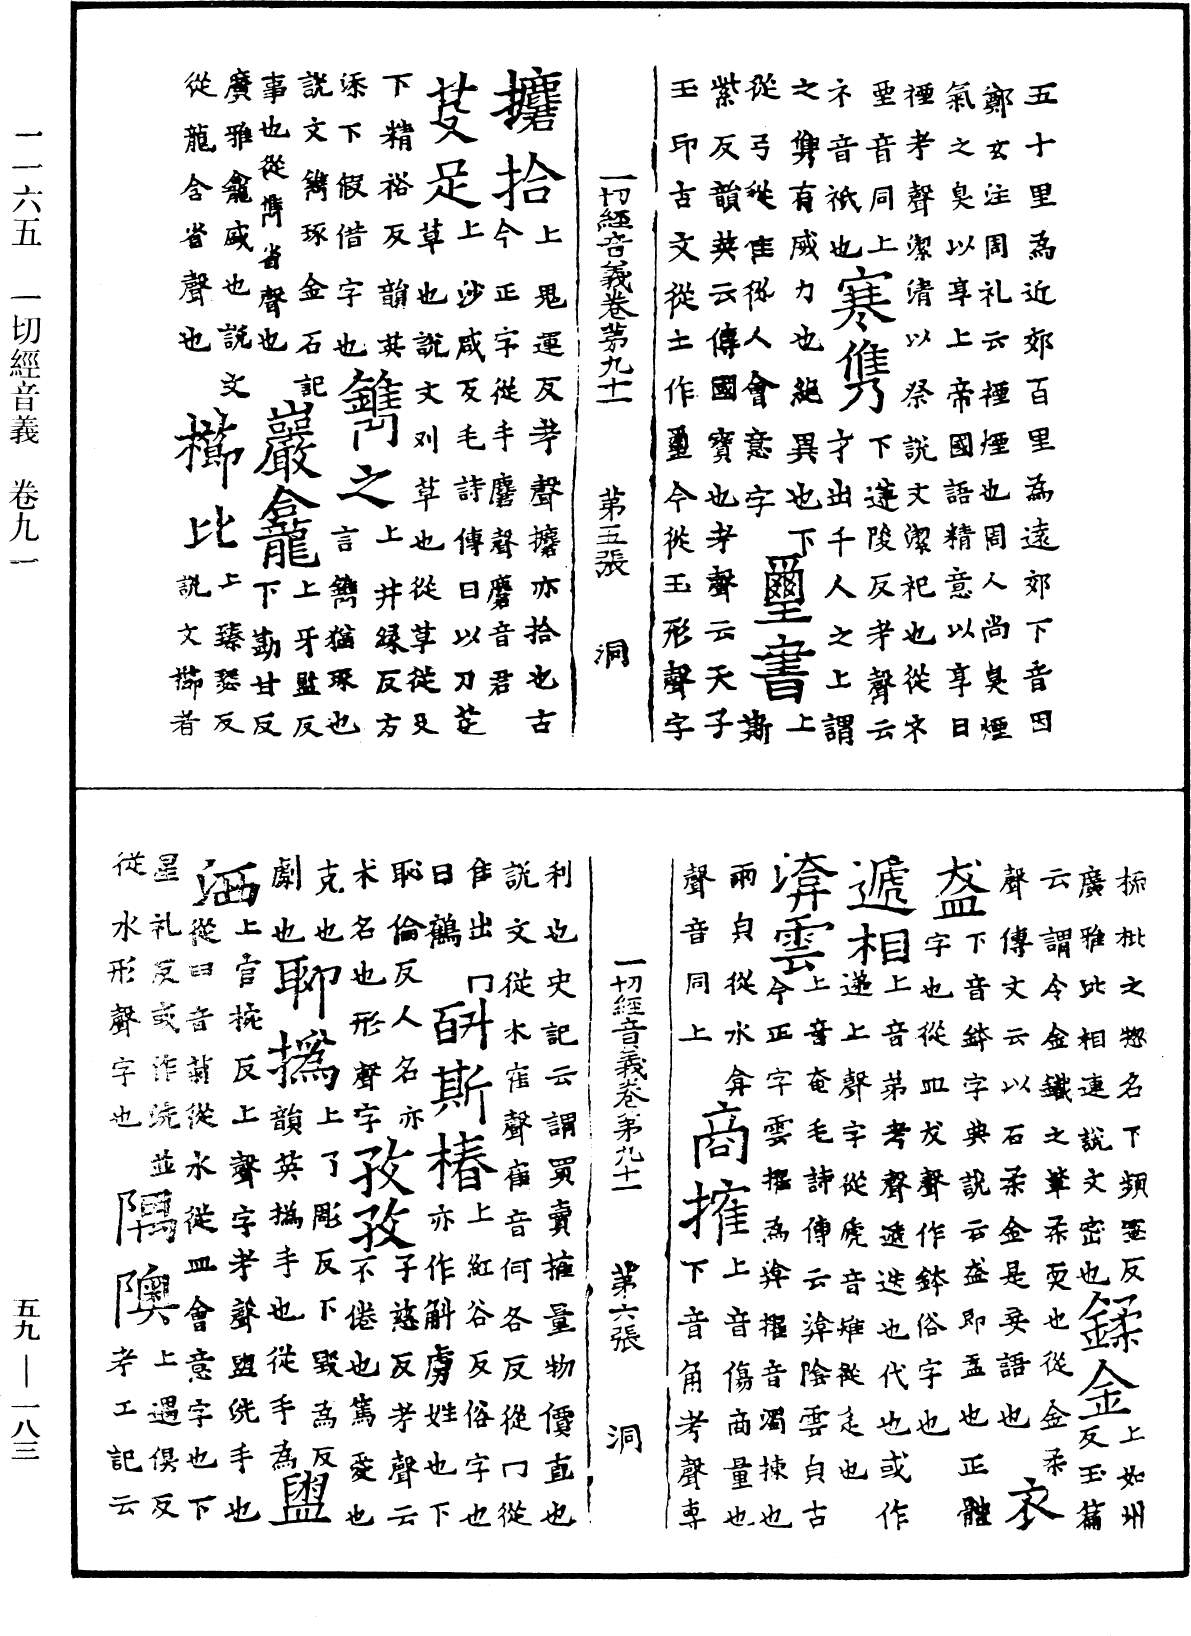 五十里為近郊百里為遠郊下音因
鄭玄注周礼云禋煙也周人尚臭煙
氣之臭以享上帝國語精意以享曰
禋考聲潔清以祭說文潔祀也從示
垔音同上寒儁下遵陵反考聲云
不音祇也才出千人之上謂
之雋有威力也絕異也下璽書上斯
從弓從隹從人會意字
紫反韻英云傳國寶也考聲云天子
玉印古文從土作壐今從玉形聲字
一切經音義卷第九十一 第五張 洞
攈拾上思運反考聲攈亦拾也古
今正字從手麇聲麇音君
芟足上沙咸反毛詩傳曰以刀芟
草也說文刈草也從草從殳
下精裕反韻英上井緑反方
添下假借字也鐫之言鐫猶琢也
說文鐫琢金石記上牙監反
事也從鐫省聲也巖龕下勘甘反
廣雅龕盛也說文上臻瑟反
從龍含省聲也櫛比說文櫛者
梳枇之惣名下頻蜜反
廣雅比相連說文密也鍒金上如州反玉篇
云謂今金鐵之筆柔耎也從金柔
聲傳文云以石柔金是妄語也衣
盋下音鉢字典說云盋即盂也正體
字也從皿犮聲作鉢俗字也
遞相上音弟考聲遞迭也代也或作
递上聲字從虒音雉從辵也
渰雲上音奄毛詩傳云渰陰雲皃古
今正字雲擢為渰擢音濁揀也
雨皃從水弇上音傷商量也
聲音同上商搉下音角考聲專
一切經音義卷第九十一 第六張 洞
利也史記云謂買賣搉量物價直也
說文從木隺聲隺音何各反從冂從
隹出冂斛斯椿上紅谷反俗字也
曰鶴亦作斛虜姓也下
恥倫反人名亦孜孜子慈反考聲云
木名也形聲字不倦也篤愛也
克也聊撝上了彫反下毀為反
劇也韻英撝手也從手為盥
上官椀反上聲字考聲盥洗手也
洒從臼音匊從水從皿會意字也下
星礼反或作洗並隅隩上遇俱反
從水形聲字也考工記云
一一六五 一切經音義 卷九一
五九—一八三